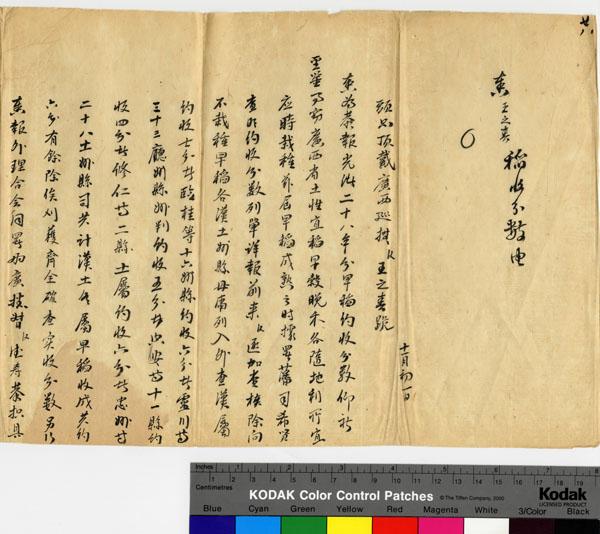 廿八
奏 王之春 稻收分數由
十一月初一日
頭品頂戴廣西巡撫臣王之春跪
奏為恭報光緒二十八年分早稻約收分數仰祈
聖鑒事竊廣西省土性宜稻早穀晚禾各隨地利所宜
應時栽種茲屆早稻成熟之時據署藩司希賢
查明約收分數列單詳報前來臣逐加查核除向
不栽種早稻各漢土州縣毋庸列入外查漢屬
約收七分者臨桂等十六州縣約收六分者靈川等
三十三廳州縣州判約收五分者 等十一縣約
收四分者修仁等二縣土屬約收六分者忠州等
二十八土州縣司共計漢土各屬早稻收成共約
六分有餘除俟刈穫齊全確查實收分數另行
奏報外理合會同署兩廣總督臣德壽恭摺具
Inches 1 2 3 4 5 6 7 8
Centimetres 1 2 3 4 5 6 7 8 9 10 11 12 13 14 15 16 17 18 19
KODAK Color Control Patches © The Tiffen Company, 2000 Kodak LICENSED PRODUCT
Blue Cyan Green Yellow Red Magenta White 3/Color Black